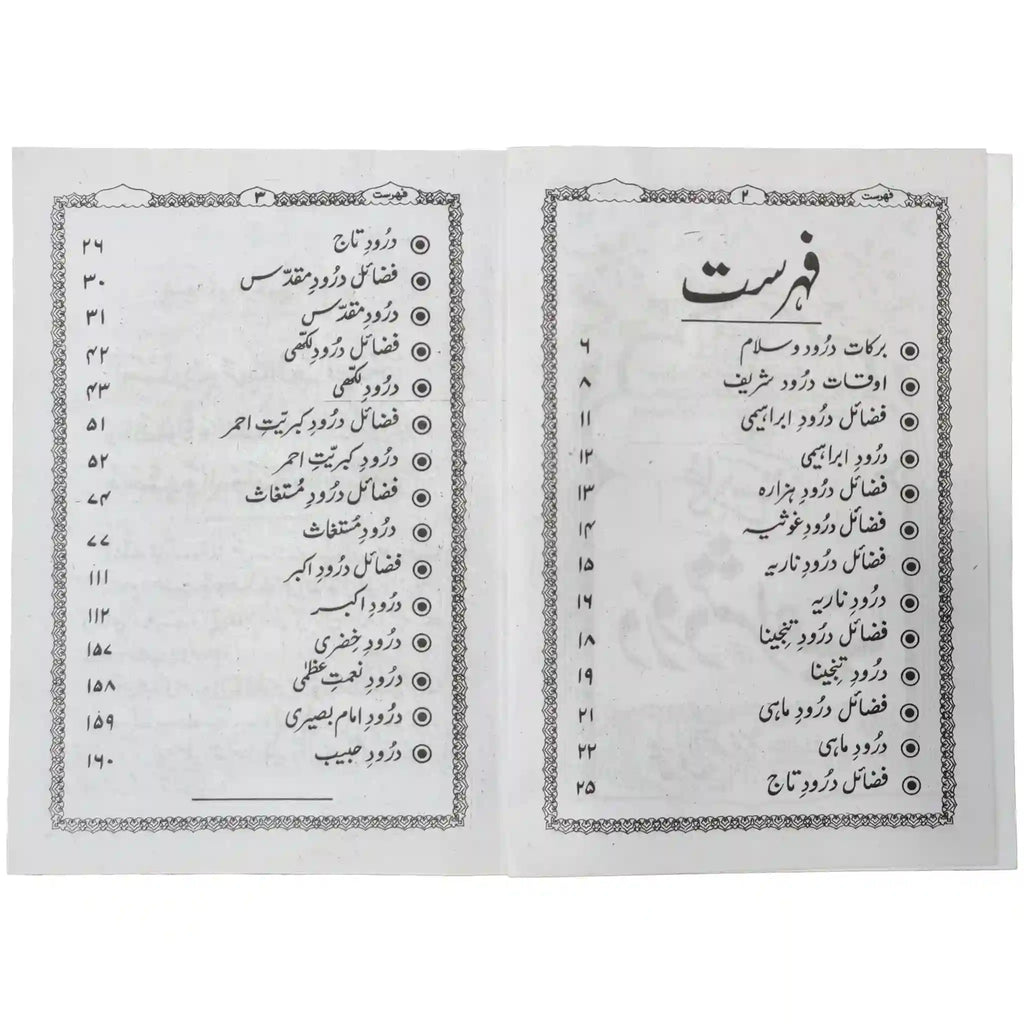 فہرست ۲
فہرست
برکات درُود و سلام ۶
اوقات درُود شریف ۸
فضائل درُودِ ابراہیمی ۱۱
درُودِ ابراہیمی ۱۲
فضائل درُودِ ہزارہ ۱۳
فضائل درُودِ غوثیہ ۱۴
فضائل درُودِ ناریہ ۱۵
درُودِ ناریہ ۱۶
فضائل درُودِ تنجینا ۱۸
درُودِ تنجینا ۱۹
فضائل درُودِ ماہی ۲۱
درُودِ ماہی ۲۲
فضائل درُودِ تاج ۲۵
فہرست ۳
درُودِ تاج ۲۶
فضائل درُودِ مقدّس ۳۰
درُودِ مقدّس ۳۱
فضائل درُودِ لکھی ۴۲
درُودِ لکھی ۴۳
فضائل درُودِ کبریّتِ احمر ۵۱
درُودِ کبریّتِ احمر ۵۲
فضائل درُودِ مُستغاث ۷۴
درُودِ مُستغاث ۷۷
فضائل درُودِ اکبر ۱۱۱
درُودِ اکبر ۱۱۲
درُودِ خِضری ۱۵۷
درُودِ نعمتِ عظمٰی ۱۵۸
درُودِ امام بصیری ۱۵۹
درُودِ حبیب ۱۶۰